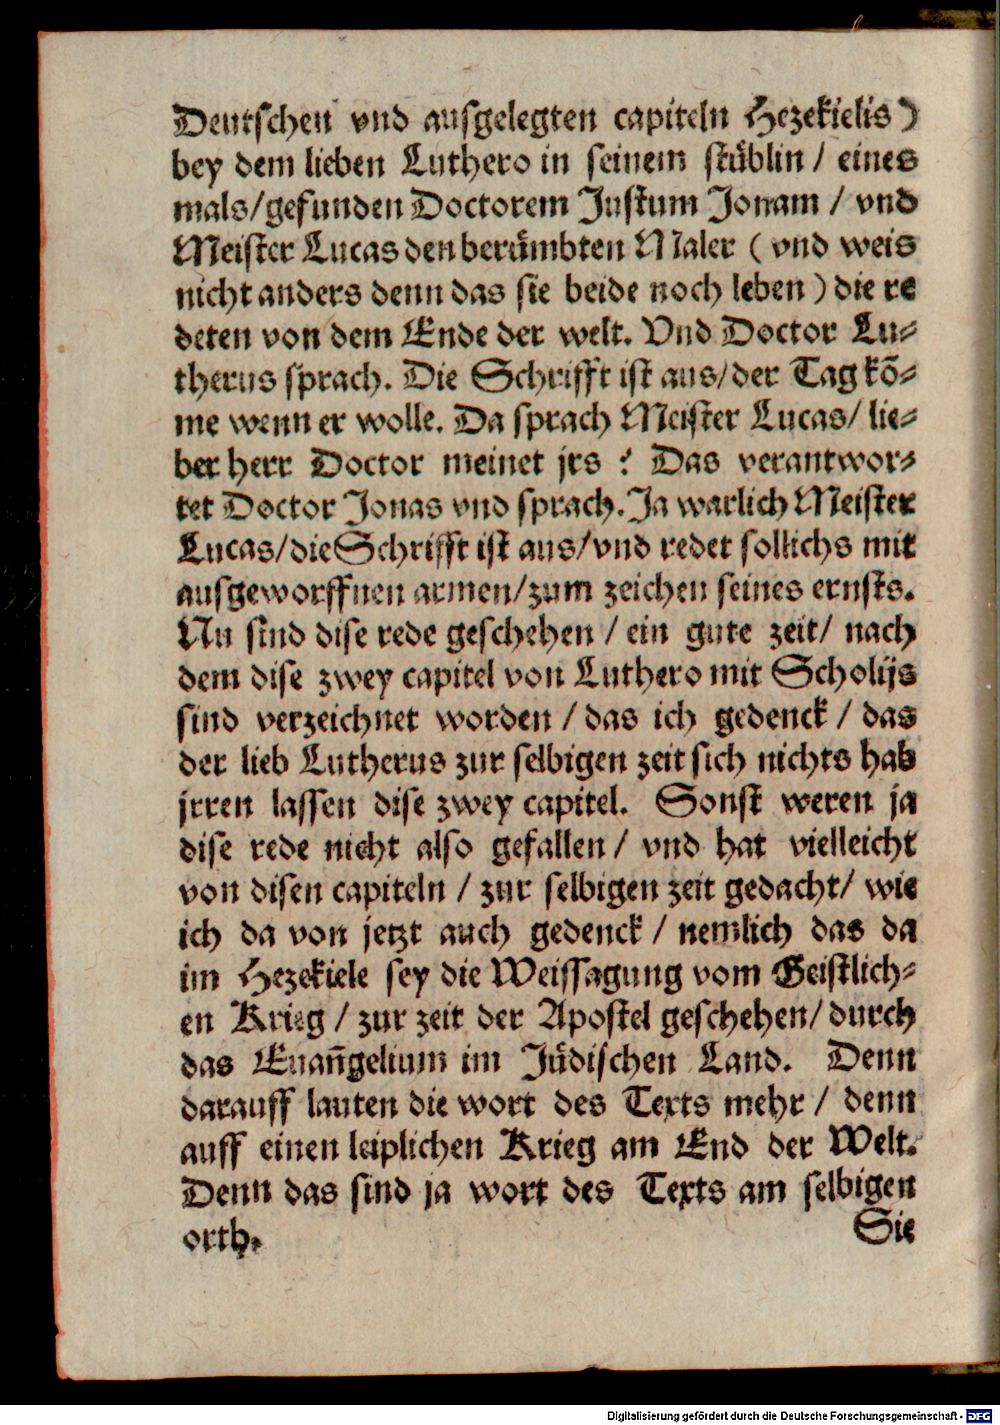 Deutschen vnd ausgelegten capiteln Hezekielis)
bey dem lieben Luthero in seinem stüblin / eines
mals/gefunden Doctorem Justum Jonam / vnd
Meister Lucas den berümbten Maler ( vnd weis
nicht anders denn das sie beide noch leben ) die re
deten von dem Ende der welt. Vnd Doctor Lu-
therus sprach. Die Schrifft ist aus/der Tag kõ-
me wenn er wolle. Da sprach Meister Lucas/ lie-
ber herr Doctor meinet jrs ? Das verantwor-
tet Doctor Jonas vnd sprach. Ja warlich Meister
Lucas/die Schrifft ist aus/vnd redet sollichs mit
ausgeworffnen armen/zum zeichen seines ernsts.
Nu sind dise rede geschehen / ein gute zeit/ nach
dem dise zwey capitel von Luthero mit Scholijs
sind verzeichnet worden / das ich gedenck / das
der lieb Lutherus zur selbigen zeit sich nichts hab
jrren lassen dise zwey capitel. Sonst weren ja
dise rede nicht also gefallen / vnd hat vielleicht
von disen capiteln / zur selbigen zeit gedacht/ wie
ich da von jetzt auch gedenck / nemlich das da
im Hezekiele sey die Weissagung vom Geistlich-
en Krieg / zur zeit der Apostel geschehen/ durch
das Euañgelium im Jüdischen Land. Denn
darauff lauten die wort des Texts mehr / denn
auff einen leiplichen Krieg am End der Welt.
Denn das sind ja wort des Texts am selbigen
orth.
Sie
Digitalisierung gefördert durch die Deutsche Forschungsgemeinschaft - DFG